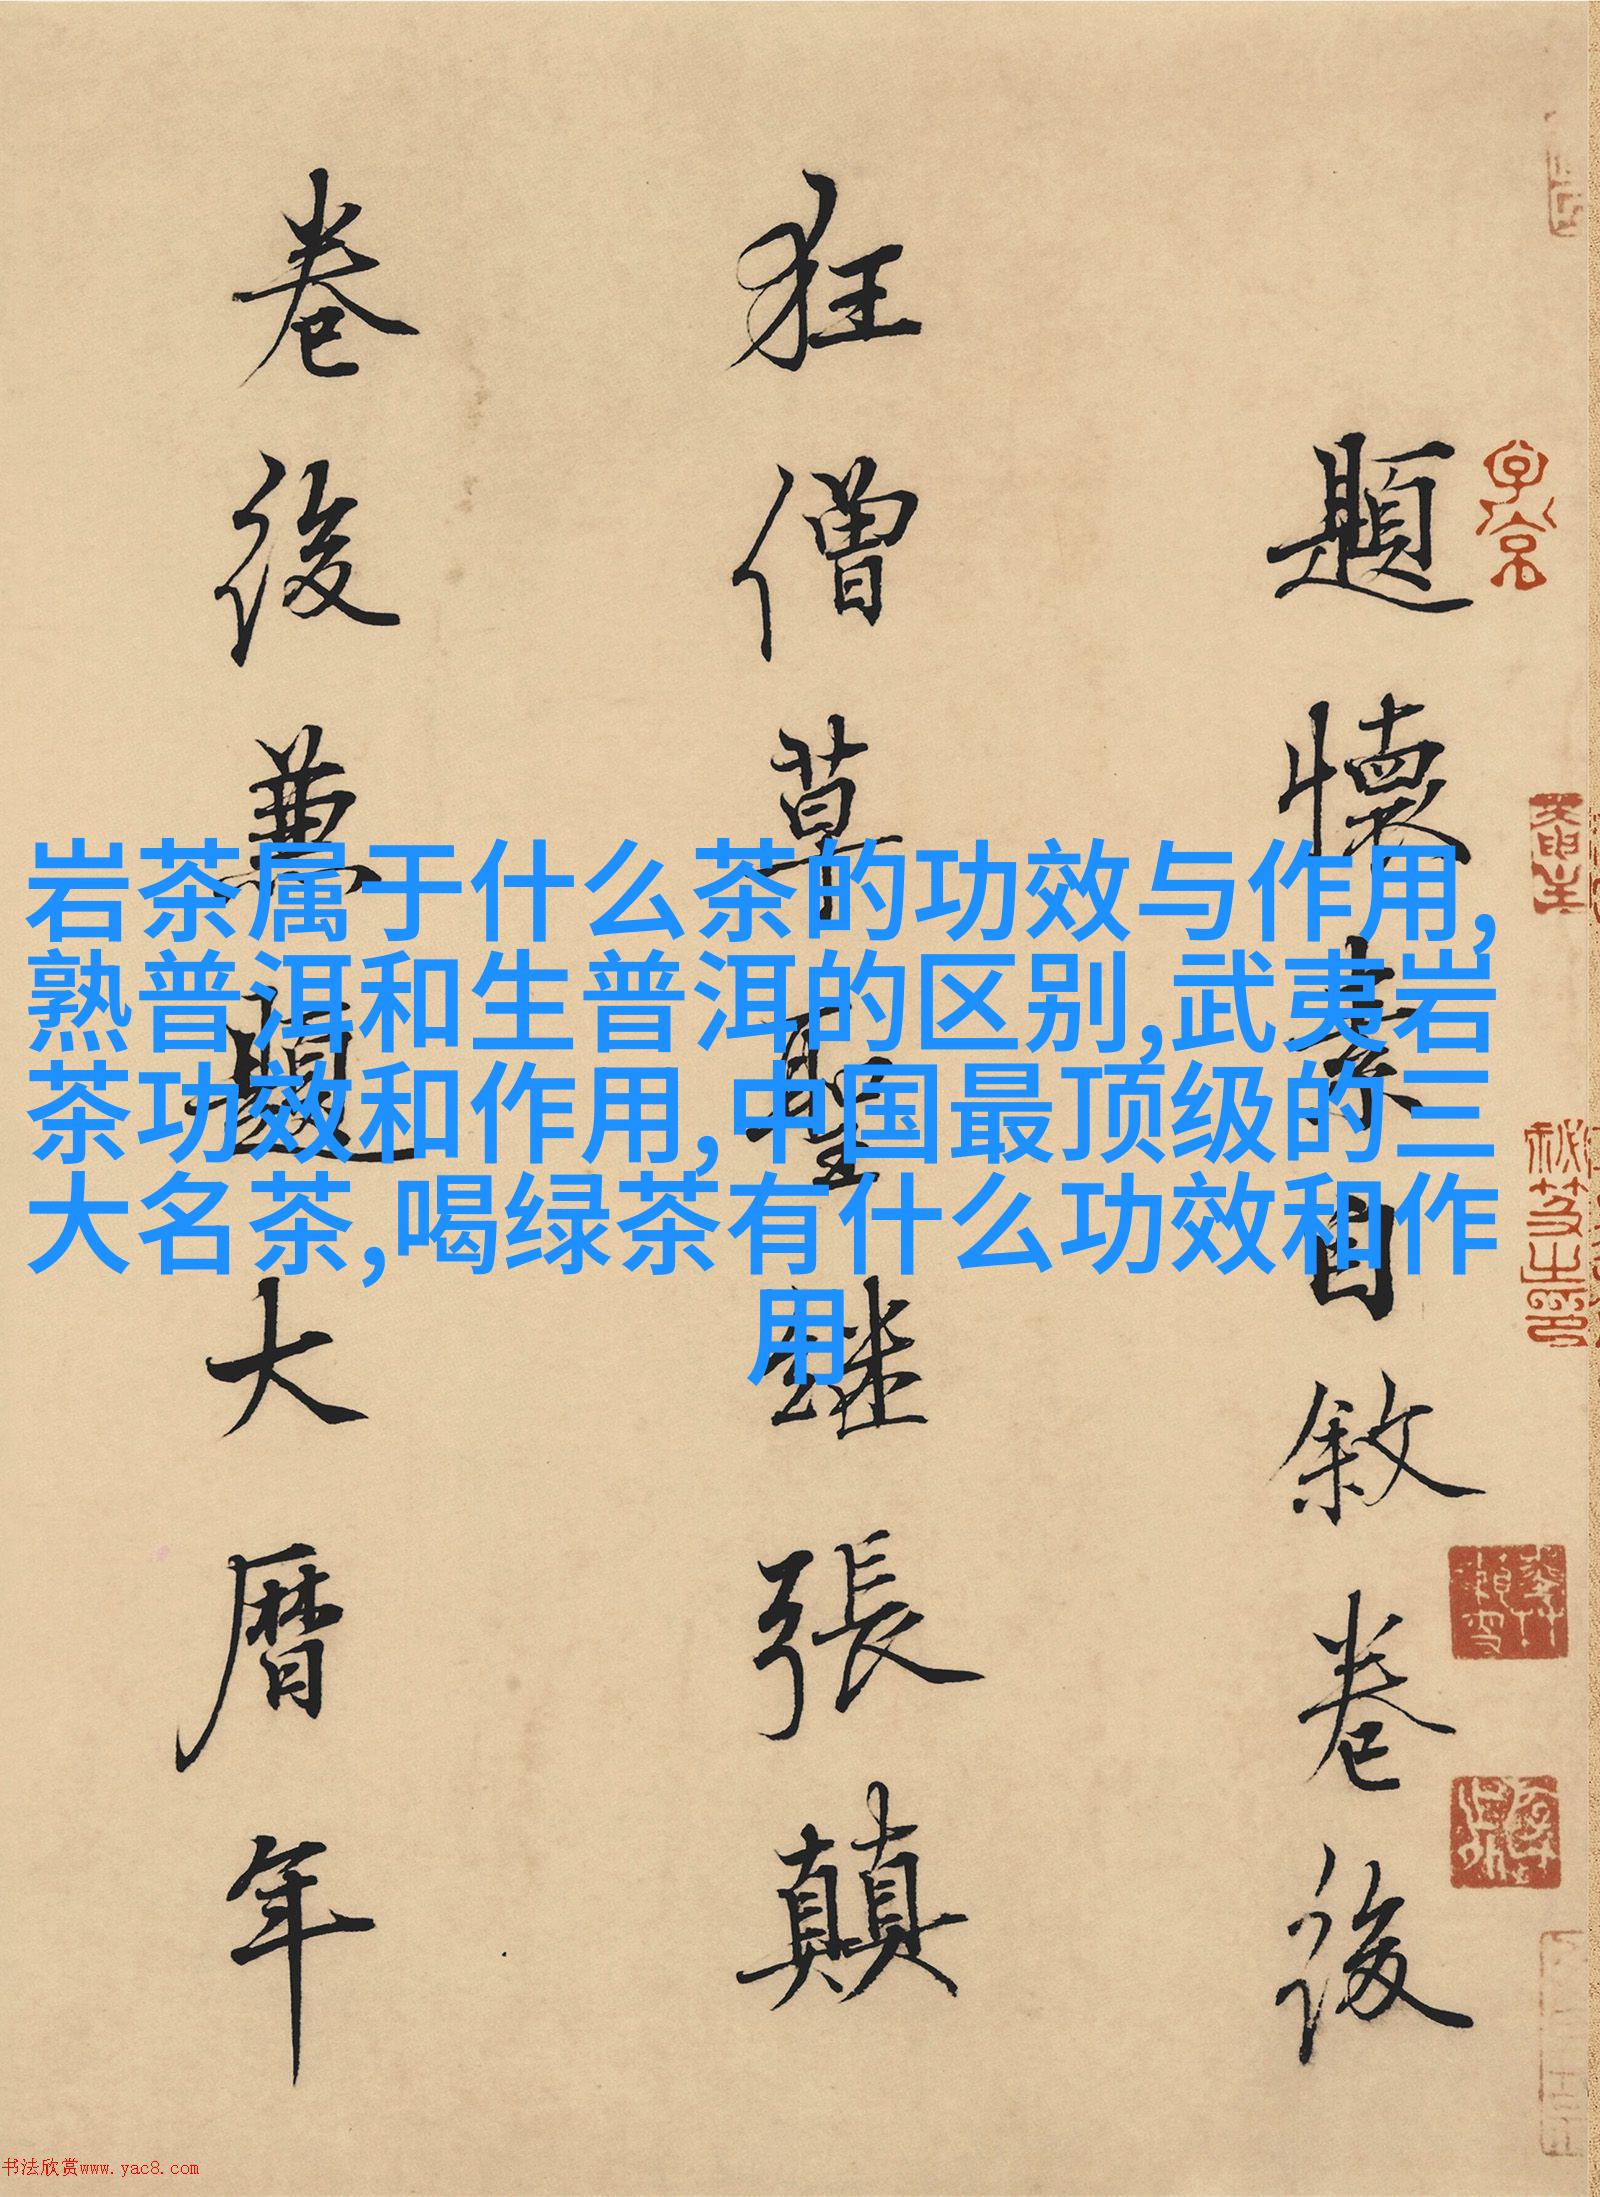 題懷素自敘卷後
狂僧草聖繼張顛
卷後兼題大曆年
岩茶属于什么茶的功效与作用,
熟普洱和生普洱的区别,武夷岩
茶功效和作用,中国最顶级的三
大名茶,喝绿茶有什么功效和作
用
书法欣赏www.yac8.com